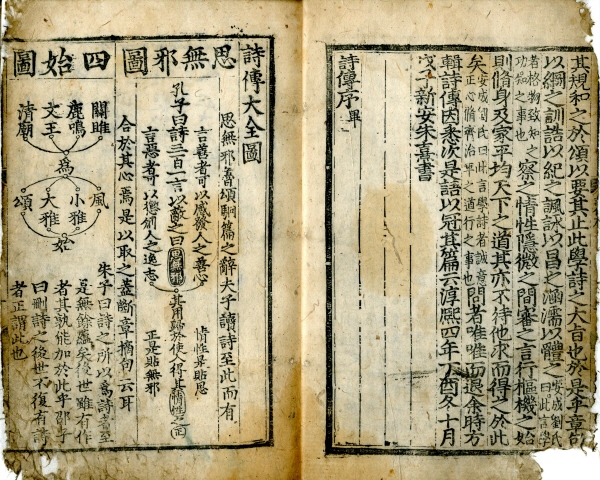 其規和之於頌以要其止此學詩之大旨也於是乎章句
以綱之訓詁以紀之諷詠以昌之涵濡以體之安成劉氏曰此言學詩
者格物致知之功知之事也察之情性隱微之間審之言行樞機之始
則脩身及家平均天下之道其亦不待他求而得之於此
矣安成劉氏曰此言學詩者誠意正心脩齊治平之道行之事也問者唯唯而退余時方
輯詩傳因悉次是語以冠其篇云淳熙四年丁酉冬十月
戊子新安朱熹書
詩傳序畢
詩傳大全圖
思無邪圖
思無邪魯頌駉篇之辭夫子讀詩至此而有
言善者可以感發人之善心
情性是貼思
孔子曰詩三百一言以蔽之曰思無邪
其用歸於使人得其情性之正
言惡者可以懲創人之逸志
正是貼無邪
合於其心焉是以取之蓋斷章摘句云耳
四始圖
關雎
鹿鳴
文王
清廟
為
風
小雅
大雅
頌
始
朱子曰詩之所以為詩者至
是無餘蘊矣後世雖有作
者其孰能加於此乎邵子
曰刪詩之後世不復有詩
者正謂此也